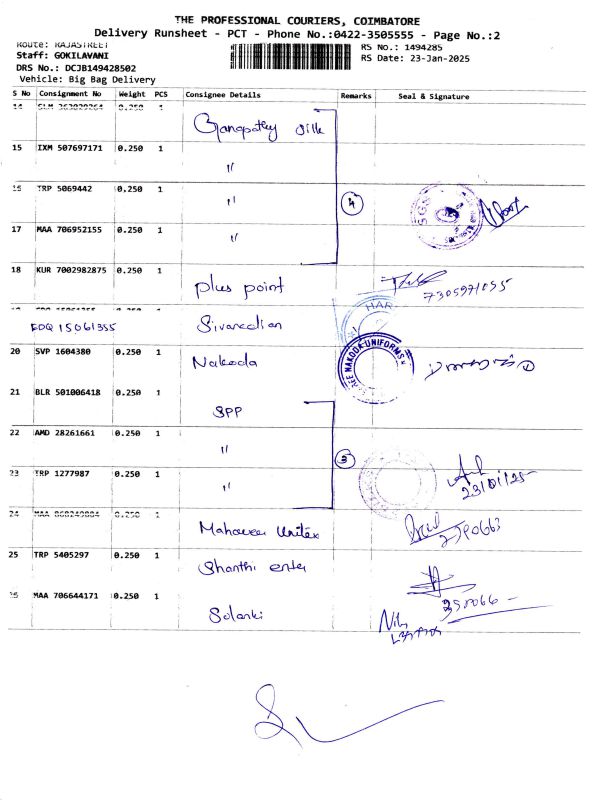 THE PROFESSIONAL COURIERS, COIMBATORE
Delivery Runsheet - PCT - Phone No.:0422-3505555 - Page No.:2
Route: RAJASTREET
RS No.: 1494285
Staff: GOKILAVANI
RS Date: 23-Jan-2025
DRS No.: DCJB149428502
Vehicle: Big Bag Delivery
S No Consignment No Weight PCS Consignee Details Remarks Seal & Signature
14 0.250 1 Ganapathy Silk
15 IXM 507697171 0.250 1 "
16 TRP 5069442 0.250 1 "
4
17 MAA 706952155 0.250 1 "
18 KUR 7002982875 0.250 1 plus point
7305971055
EDQ 15061355 Sivaredian
HAR
20 SVP 1604380 0.250 1 Nakoda
NAKODA UNIFORMS
21 BLR 501006418 0.250 1 SPP
22 AMD 28261661 0.250 1 "
3
23 TRP 1277987 0.250 1 "
23/01/25
24 MAA 0.250 1 Mahaveer Unitex
25 TRP 5405297 0.250 1 Shanthi enter
26 MAA 706644171 0.250 1 Solanki